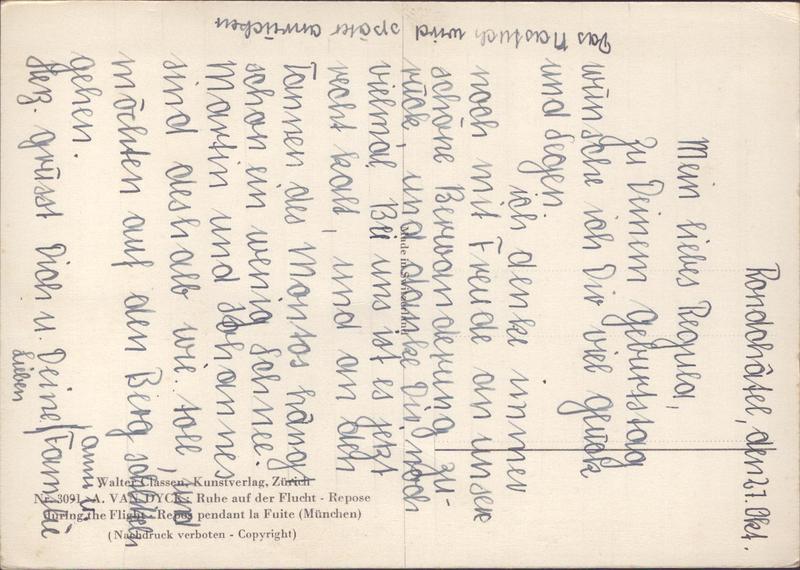 Rondchâtel, den 27. Okt.
Mein liebes Regula,
zu Deinem Geburtstag
wünsche ich Dir viel Glück
und Segen.
ich denke immer
noch mit Freude an unsere
schöne Berwanderung zu-
rück, und danke Dir noch
vielmal. Bei uns ist es jetzt
recht kalt, und an den
Tannen des Montos hängt
schon ein wenig Schnee.
Martin und Johannes
sind deshalb wie toll, und
möchten auf den Berg schlitteln
gehen.
Herz. grüsst Dich u. Deine lieben
Familie
Das Nastuch wird später anrücken
Made in Switzerland
Walter Classen, Kunstverlag, Zürich
Nr. 3091 - A. VAN DYCK: Ruhe auf der Flucht - Repose
during the Flight - Repos pendant la Fuite (München)
(Nachdruck verboten - Copyright)